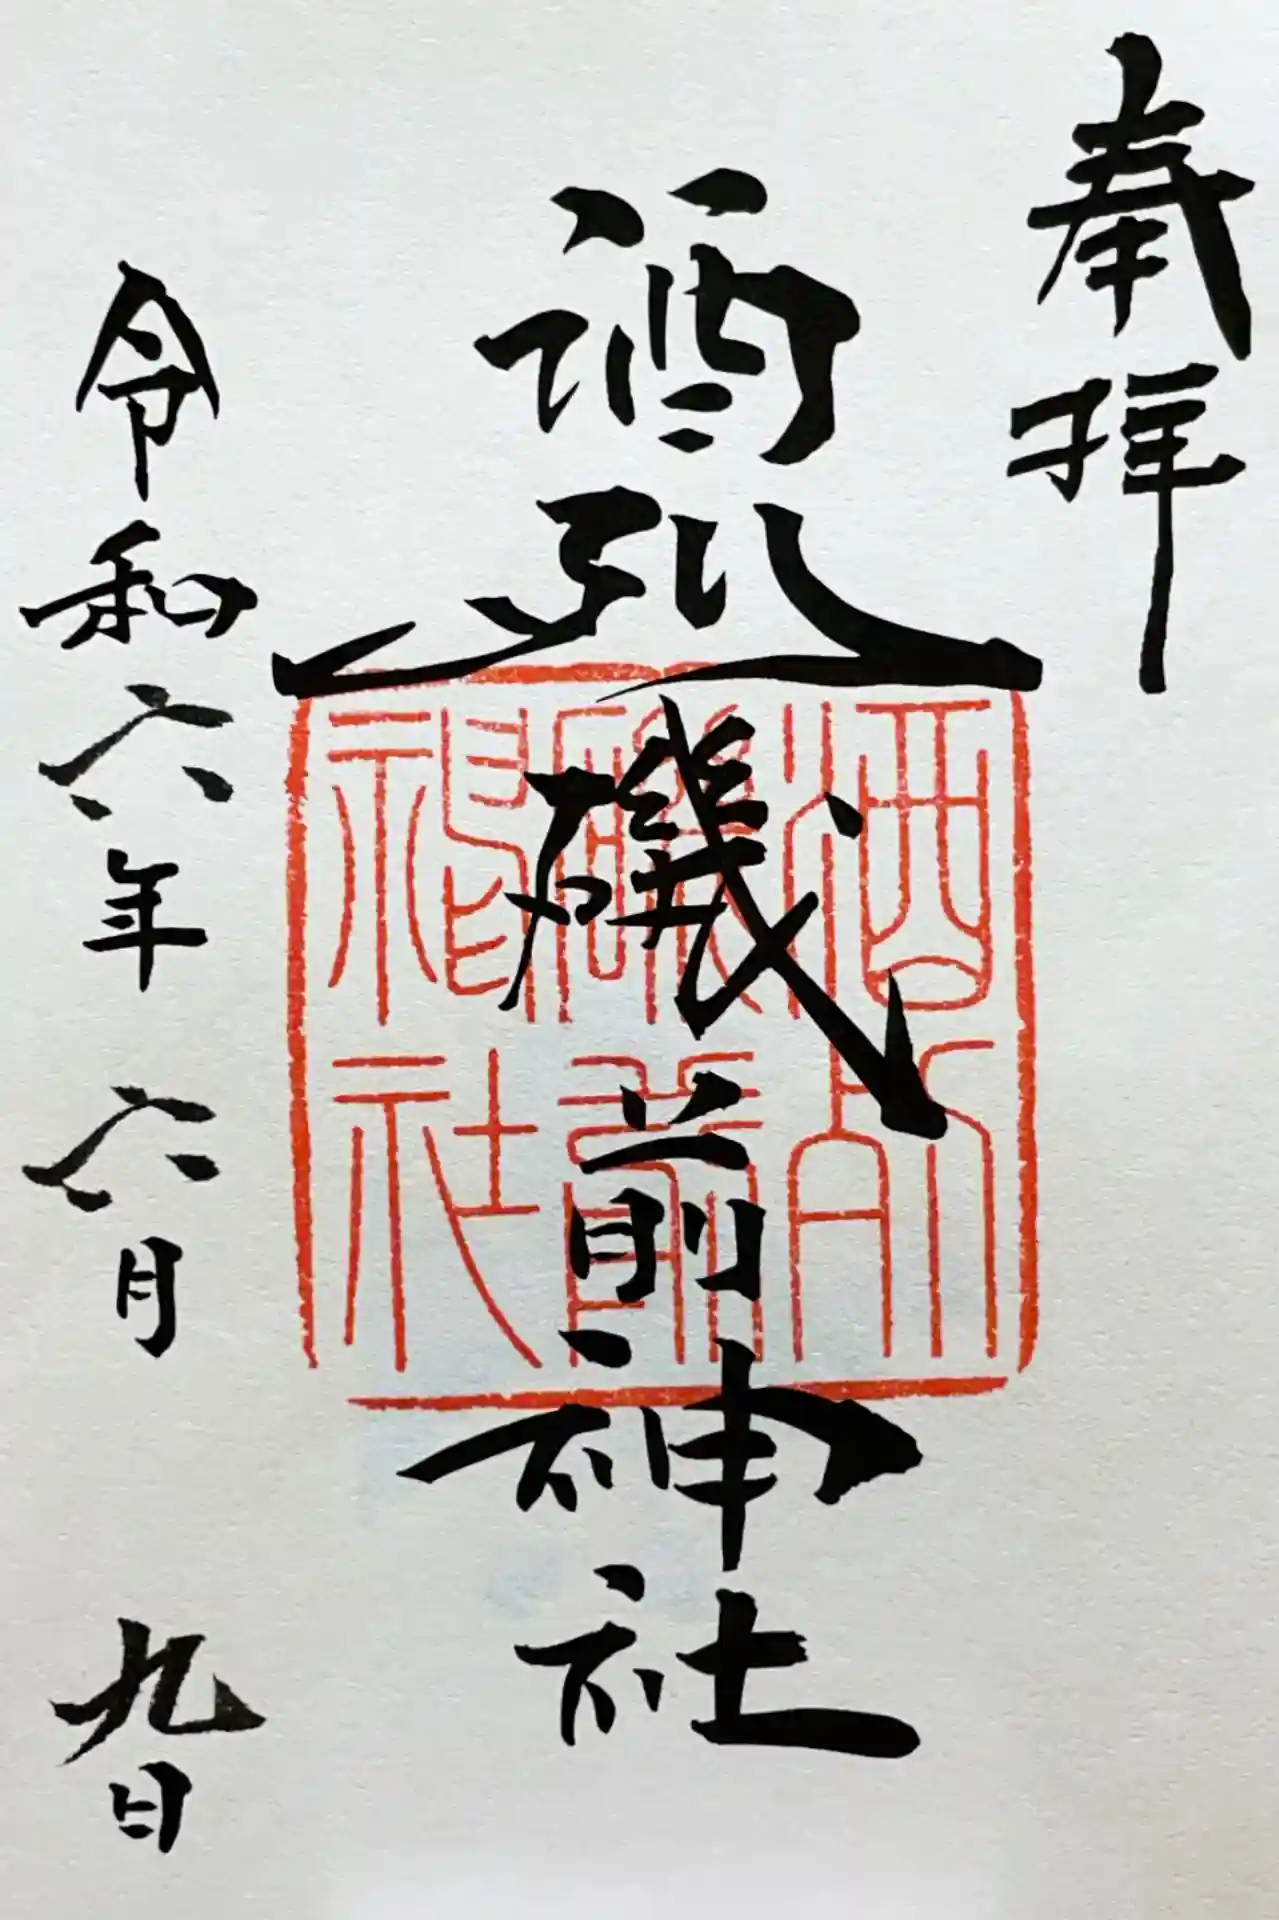 奉拝
酒列磯前神社
酒列
磯前
神社
令和六年六月九日